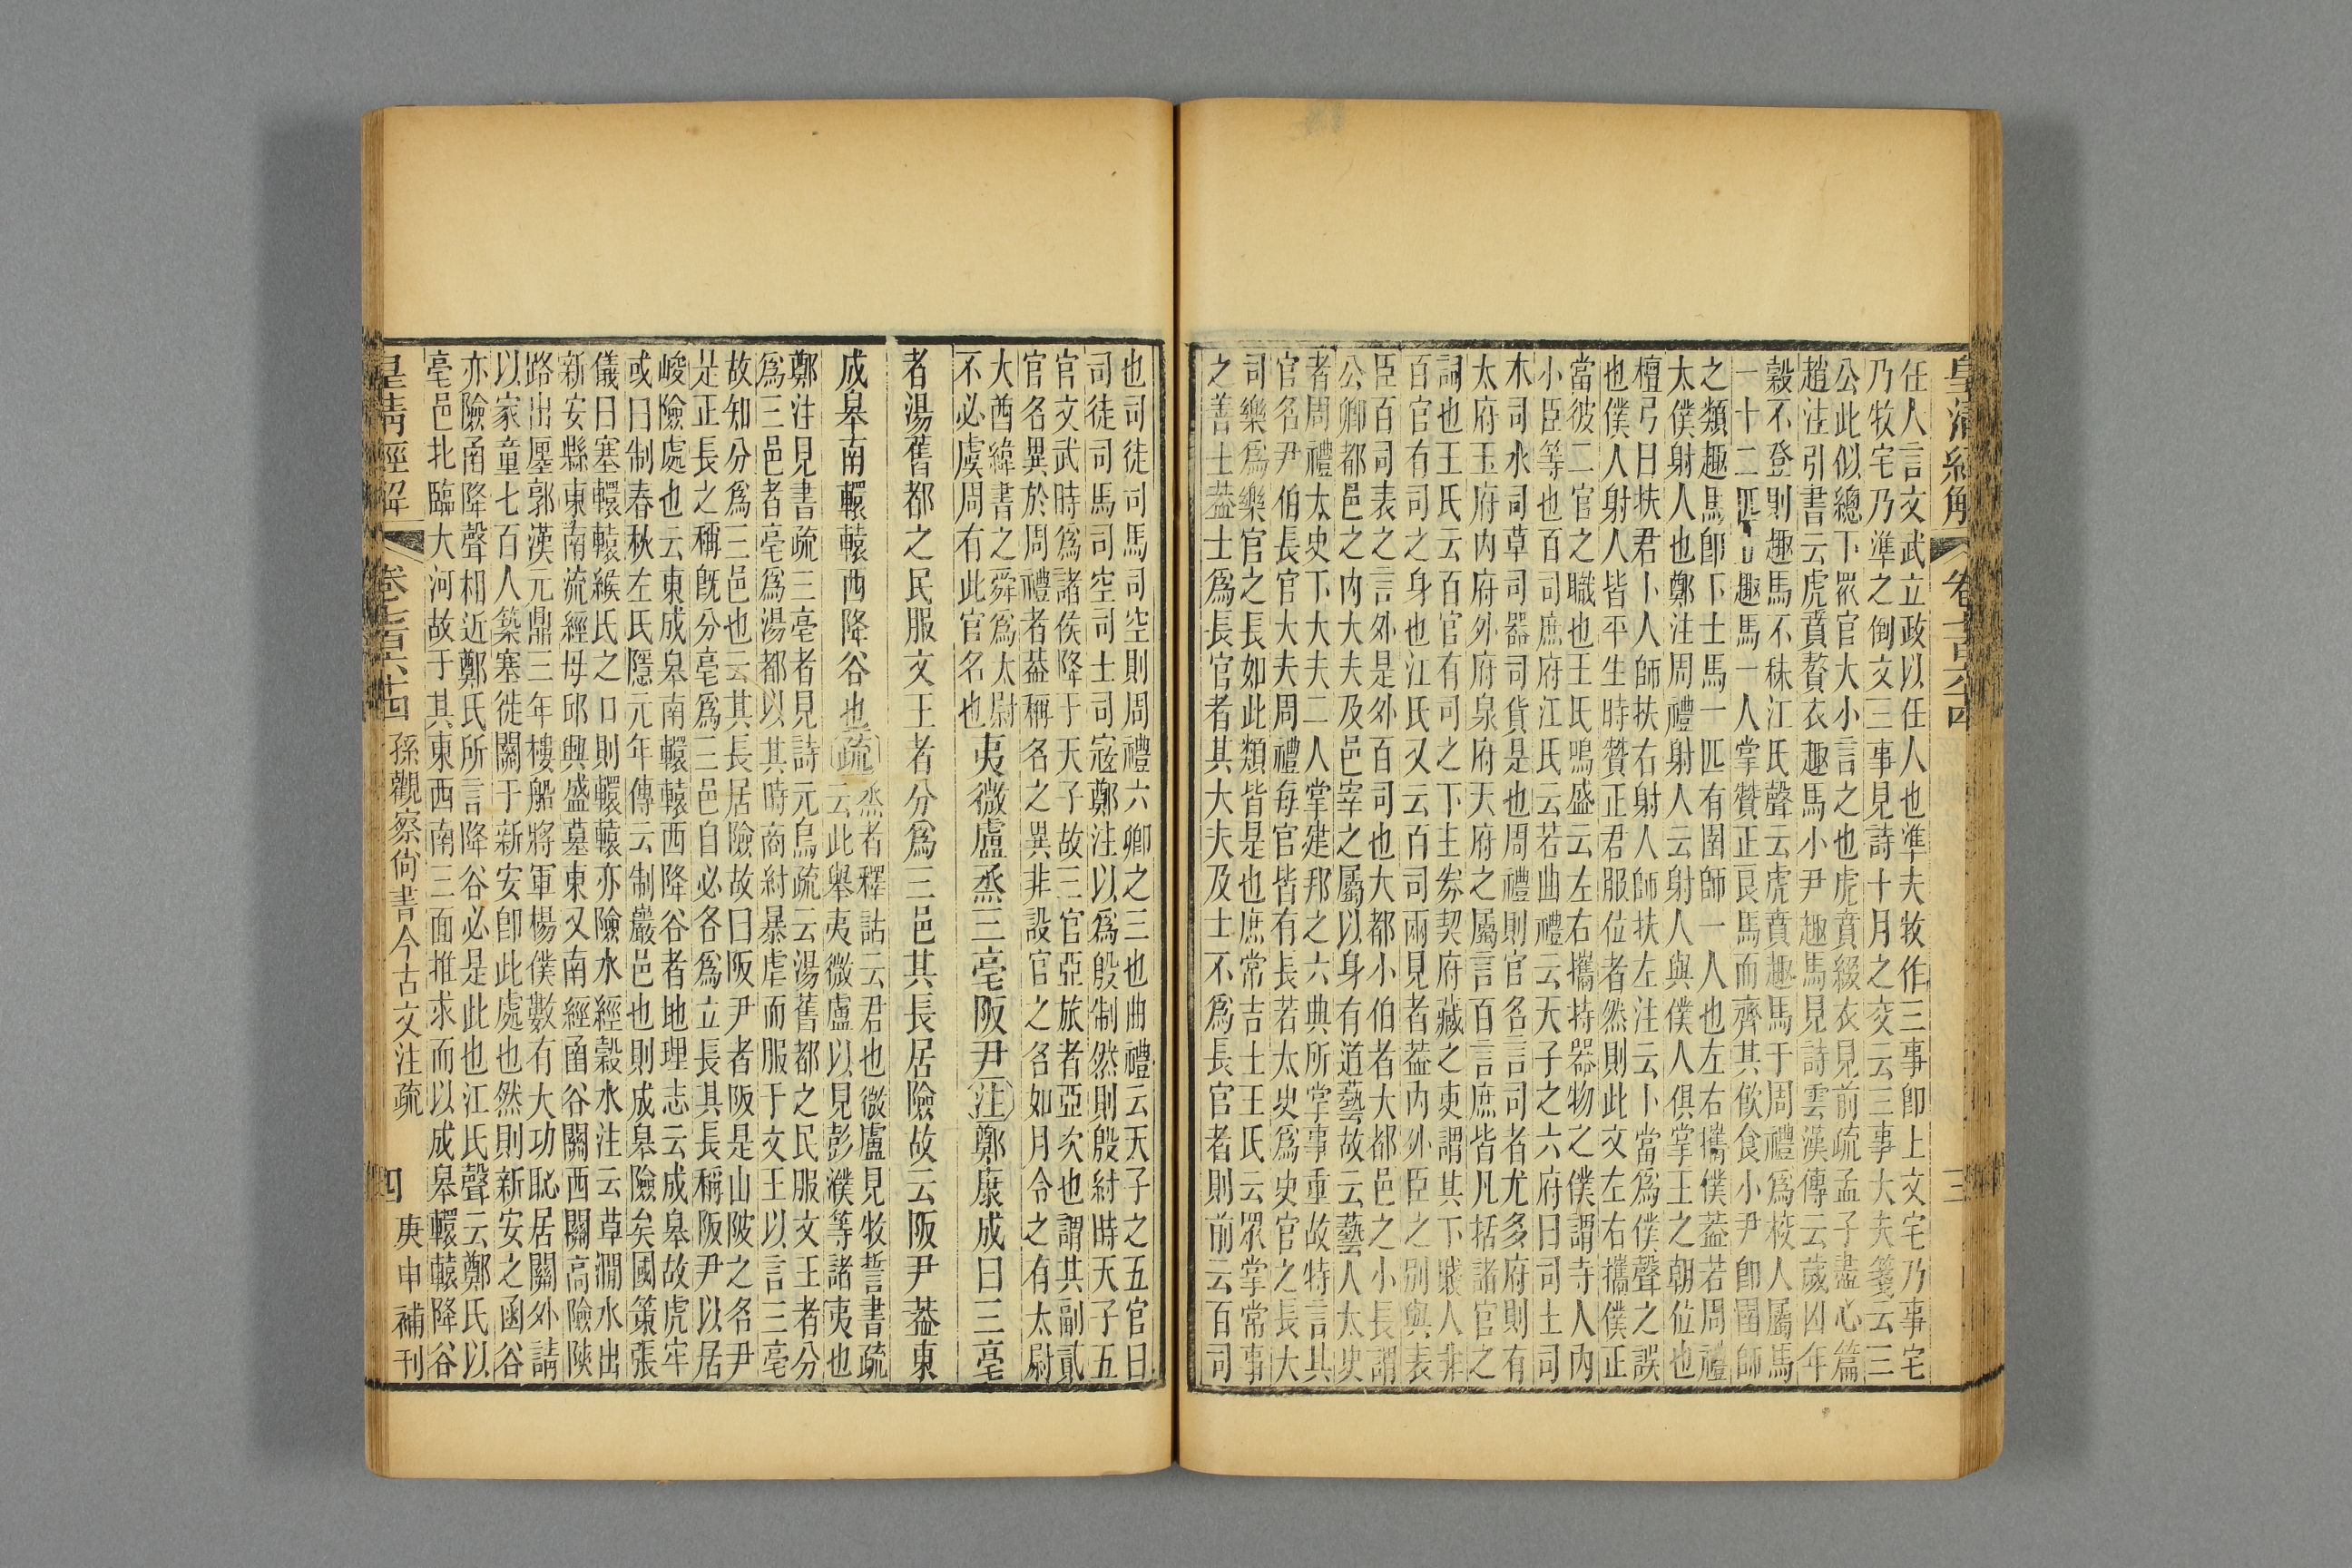 任人言文武立政以任人也準夫牧作三事卽上文宅乃事宅
乃牧宅乃準之倒文三事見詩十月之交云三事大夫箋云三
公此似總下眾官大小言之也虎賁綴衣見前疏孟子盡心篇
趙注引書云虎賁贅衣趣馬小尹趣馬見詩雲漢傳云歲凶年
穀不登則趣馬不秣江氏聲云虎賁趣馬于周禮爲校人屬馬
一十二匹趣馬一人掌贊正良馬而齊其飲食小尹卽圉師
之類趣馬卽下士馬一匹有圉師一人也左右攜僕蓋若周禮
太僕射人也鄭注周禮射人云射人與僕人俱掌王之朝位也
檀弓曰扶君卜人師扶右射人師扶左注云卜當爲僕聲之誤
也僕人射人皆平生時贊正君服位者然則此文左右攜僕正
當彼二官之職也王氏鳴盛云左右攜持器物之僕謂寺人內
小臣等也百司庶府江氏云若曲禮云天子之六府曰司土司
木司水司草司器司貨是也周禮則官名言司者尤多府則有
太府玉府內府外府泉府天府之屬言百言庶皆凡括諸官之
詞也王氏云百官有司之下主券契府藏之吏謂其下賤人非
百官有司之身也江氏又云百司兩見者蓋內外臣之別與表
臣百司表之言外是外百司也大都小伯者大都邑之小長謂
公卿都邑之內大夫及邑宰之屬以身有道藝故云藝人太史
者周禮太史下大夫二人掌建邦之六典所掌事重故特言其
官名尹伯長官大夫周禮每官皆有長若太史爲史官之長大
司樂爲樂官之長如此類皆是也庶常吉士王氏云眾掌常事
之善士蓋士爲長官者其大夫及士不爲長官者則前云百司
皇清經解
卷
三
也司徒司馬司空則周禮六卿之三也曲禮云天子之五官曰
司徒司馬司空司士司寇鄭注以爲殷制然則殷紂時天子五
官文武時爲諸侯降于天子故三官亞旅者亞次也謂其副貳
官名異於周禮者蓋稱名之異非設官之名如月令之有太尉
大酋緯書之舜爲太尉
不必虞周有此官名也
夷微盧烝三亳阪尹注鄭康成曰三亳
者湯舊都之民服文王者分爲三邑其長居險故云阪尹蓋東
成皋南轘轅西降谷也疏
烝者釋詁云君也微盧見牧誓書疏
云此舉夷微盧以見彭濮等諸夷也
鄭注見書疏三亳者見詩元鳥疏云湯舊都之民服文王者分
爲三邑者亳爲湯都以其時商紂暴虐而服于文王以言三亳
故知分爲三邑也云其長居險故曰阪尹者阪是山陂之名尹
是正長之稱旣分亳爲三邑自必各爲立長其長稱阪尹以居
峻險處也云東成皋南轘轅西降谷者地理志云成皋故虎牢
或曰制春秋左氏隱元年傳云制巖邑也則成皋險矣國策張
儀曰塞轘轅緱氏之口則轘轅亦險水經穀水注云草澗水出
新安縣東南流經毋邱興盛墓東又南經函谷關西關高險陜
路出廛郭漢元鼎三年樓船將軍楊僕數有大功恥居關外請
以家童七百人築塞徙關于新安卽此處也然則新安之函谷
亦險函降聲相近鄭氏所言降谷必是此也江氏聲云鄭氏以
亳邑北臨大河故于其東西南三面推求而以成皋轘轅降谷
皇清經解 卷三百六十四 孫觀察尙書今古文注疏 四 庚申補刊